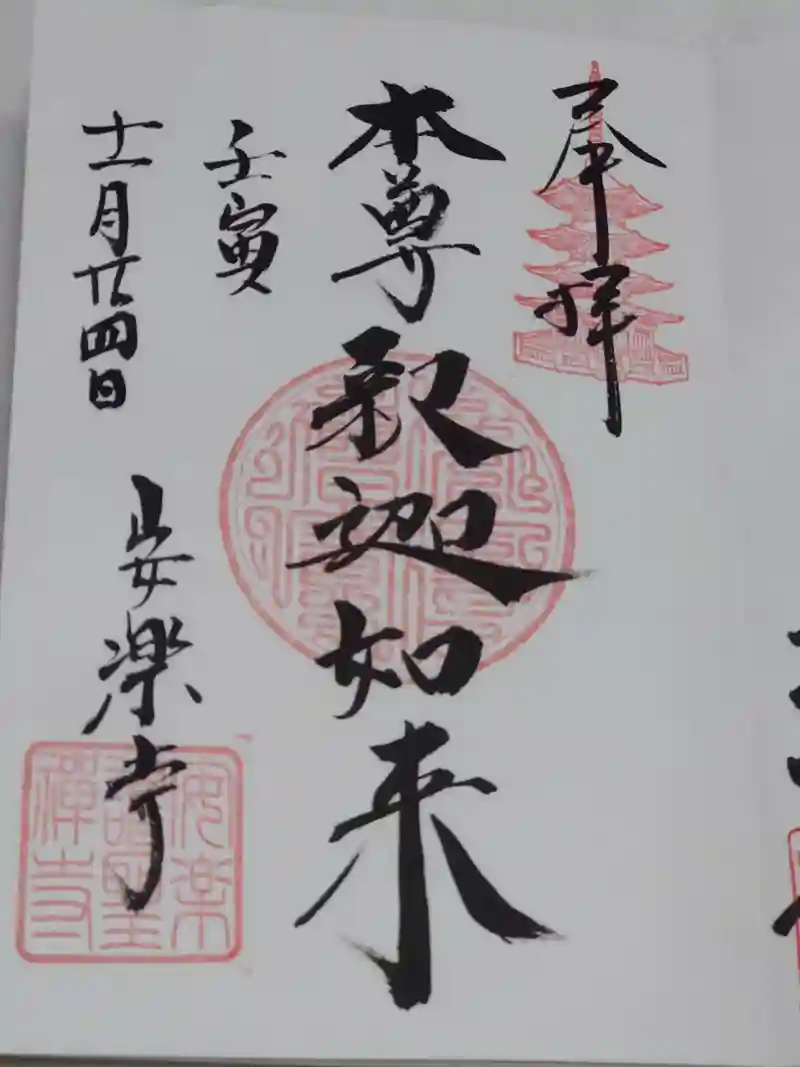 奉拝
本尊釈迦如来
壬寅
十一月廿四日
安楽寺
安楽
護聖
禪寺